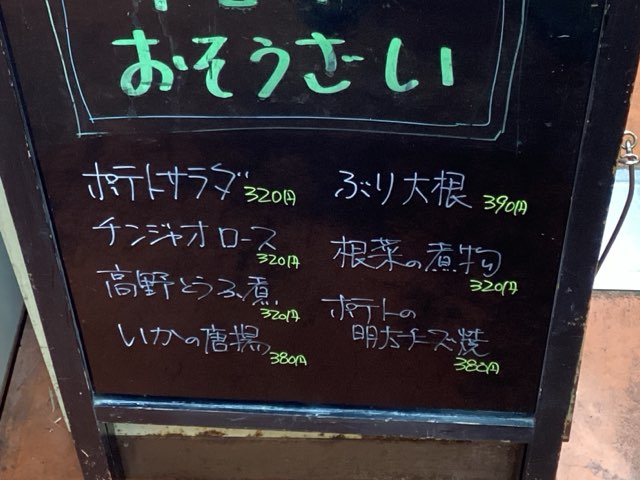 おそうざい
ポテトサラダ 320円
チンジャオロース 320円
高野とうふ煮 320円
いかの唐揚 380円
ぶり大根 390円
根菜の煮物 320円
ポテトの
明太チーズ焼 380円